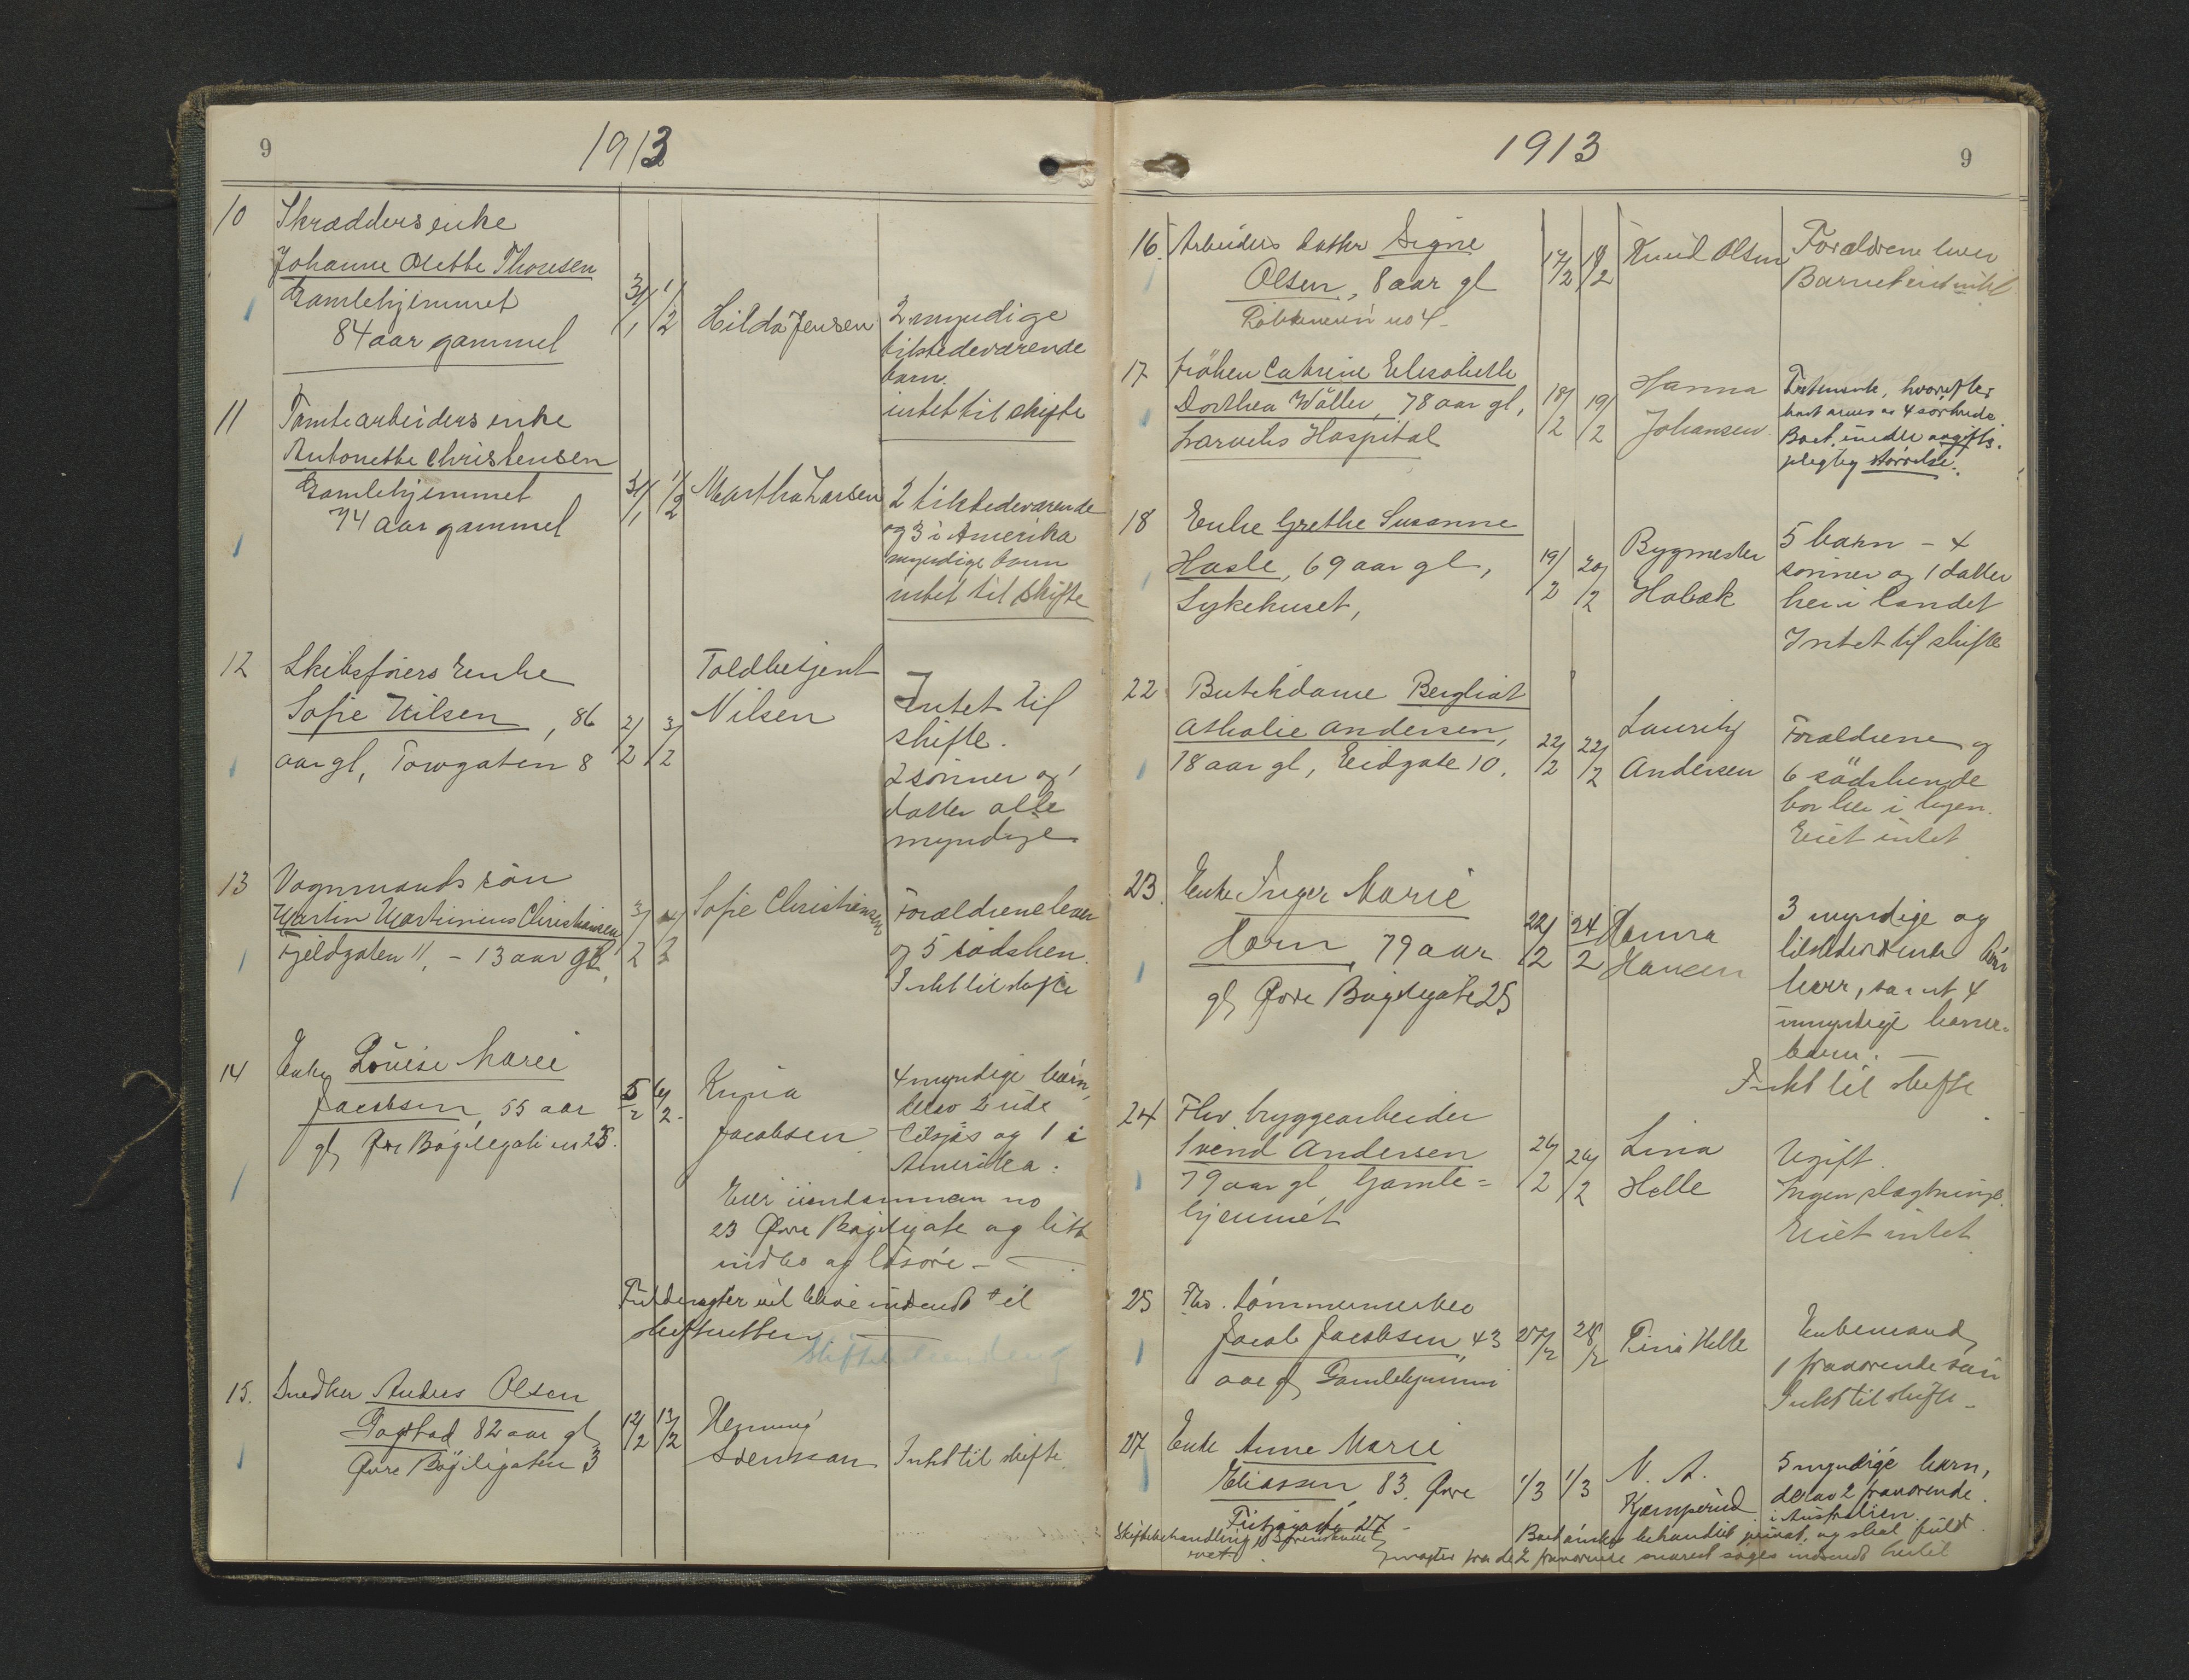 9
1913
10 Skrædders enke
Johanne Olette Thoresen
Gamlehjemmet
84 aar gammel
31/1 1/2
Hilda Jensen
2 myndige
tilstedeværende
barn.
intet til skifte
11 Tomtearbeiders enke
Antonette Christensen
Gamlehjemmet
74 aar gammel
31/1 1/2
Martha Larsen
2 tilstedeværende
og 3 i Amerika
myndige barn
intet til skifte
12 Skibsførers Enke
Sofie Nilsen, 86
aar gl, Torvgaten 8
2/2 3/2
Toldbetjent
Nilsen
Intet til
skifte.
2 sønner og 1
datter alle
myndige
13 Vognmands søn
Martin Martinius Christiansen
Fjeldgaten 11, - 13 aar gl,
3/2 4/2
Sofie Christiansen
Forældrene lever
og 5 södsken.
Intet til skifte
14 Enke Louise Marie
Jacobsen, 55 aar
gl Øvre Bøgelegate no 23.
5/2 6/2
Jacobsen
4 myndige børn,
derav 2 ude
tilsjøs og 1 i
Amerika.
Eier iendommen no
23 Øvre Bøgelegate og litt
indbo og løsøre -
Fuldmagter vil blive indsendt til
skifteretten
15. Snedker Anders Olsen
82 aar gl
Øvre Bøgelegaten 3
12/2 13/2
Henning
Svensson
Intet til skifte.
1913
9
16. Arbeiders datter Signe
Olsen, 8 aar gl
no 4-
17/2 18/2
Knud Olsen
Forældrene lever
Barnet eiet intet
17 frøken Catrine Elisabeth
Dorthea Wøller, 78 aar gl,
Larviks Hospital
18/2 19/2
Hanna
Johansen
Testamente, hvorefter
boet arves av 4 søskende
Boet under avgifts-
pligtig størrelse.
18 Enke Grethe Susanne
Hasle, 69 aar gl,
Sykehuset,
19/2 20/2
Bygmester
Holbæk
5 barn - 4
sønner og 1 datter
her i landet
Intet til skifte
22 Butikdame Bergliot
Athalie Andersen,
18 aar gl, Eidgate 10.
22/2 22/2
Lauritz
Andersen
Forældrene og
6 södskende
bor her i byen.
Eiet intet
23. Enke Inger Marie
Horn, 79 aar
gl Øvre Bøgelegate 25
22/2 24/2
Hanna
Hansen
3 myndige og
tilstedeværende børn
herr, samt 4
umyndige barne-
barn. -
Intet til skifte
24 Fhv. bryggearbeider
Svend Andersen
79 aar gl, Gamle=
hjemmet
26/2 26/2
Lina
Helle
Ugift.
Ingen slægtninge.
Eiet intet
25 Fhv. tømmermerker
Jacob Jacobsen, 43
aar gl Gamlehjemmet
27/2 28/2
Helle
Enkemand,
1 fraværende søn
Intet til skifte -
27 Enke Anne Marie
Eliassen, 83. Øvre
Fritzøgate 27 -
1/3 1/3
N. A.
Kjamperud
5 myndige barn,
derav 2 fraværende
i Australien.
Boet ønskes behandlet privat, og skal fuld-
magter fra de 2 fraværende snarest søges indsendt hertil
Skiftebehandling